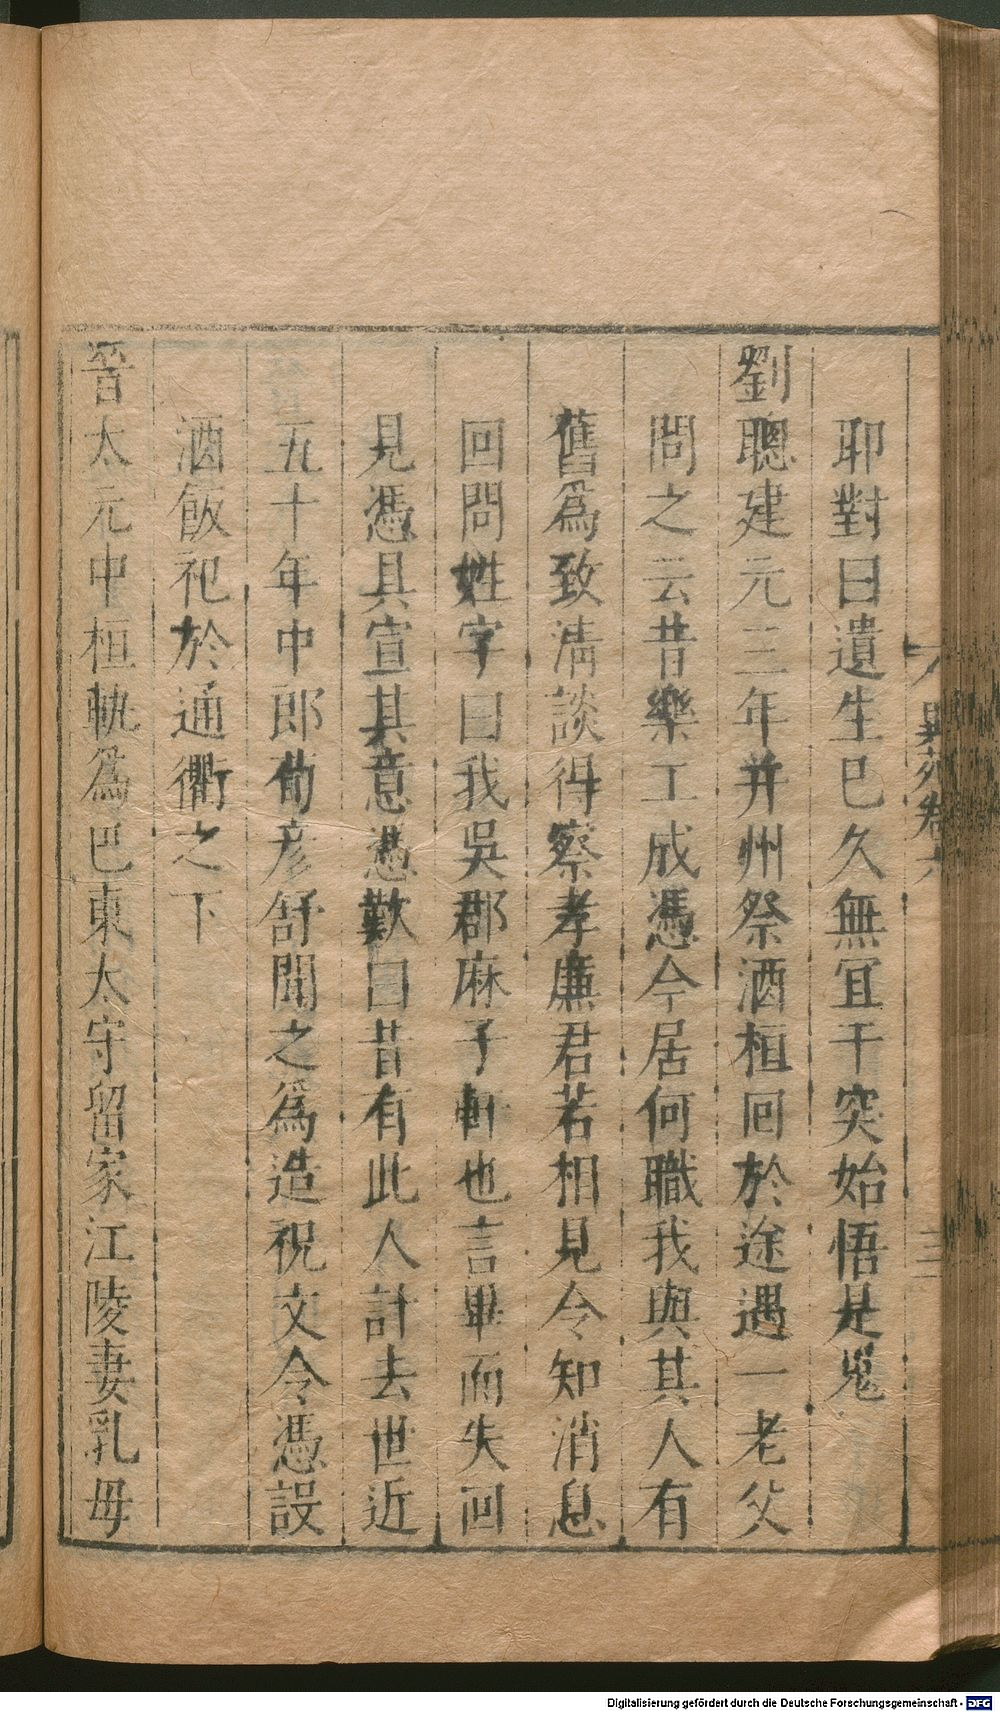 耶對曰遺生已久無宜干突始悟是鬼
劉聰建元三年并州祭酒桓回於途遇一老父
問之云昔樂工成憑今居何職我與其人有
舊爲致清談得察孝廉君若相見令知消息
回問姓字曰我吳郡麻子軒也言畢而失回
見憑具宣其意憑歎曰昔有此人計去世近
五十年中郎荀彥舒聞之爲造祝文令憑設
酒飯祀於通衢之下
晉太元中桓軌爲巴東太守留家江陵妻乳母
異苑卷六
三
Digitalisierung gefördert durch die Deutsche Forschungsgemeinschaft - DFG